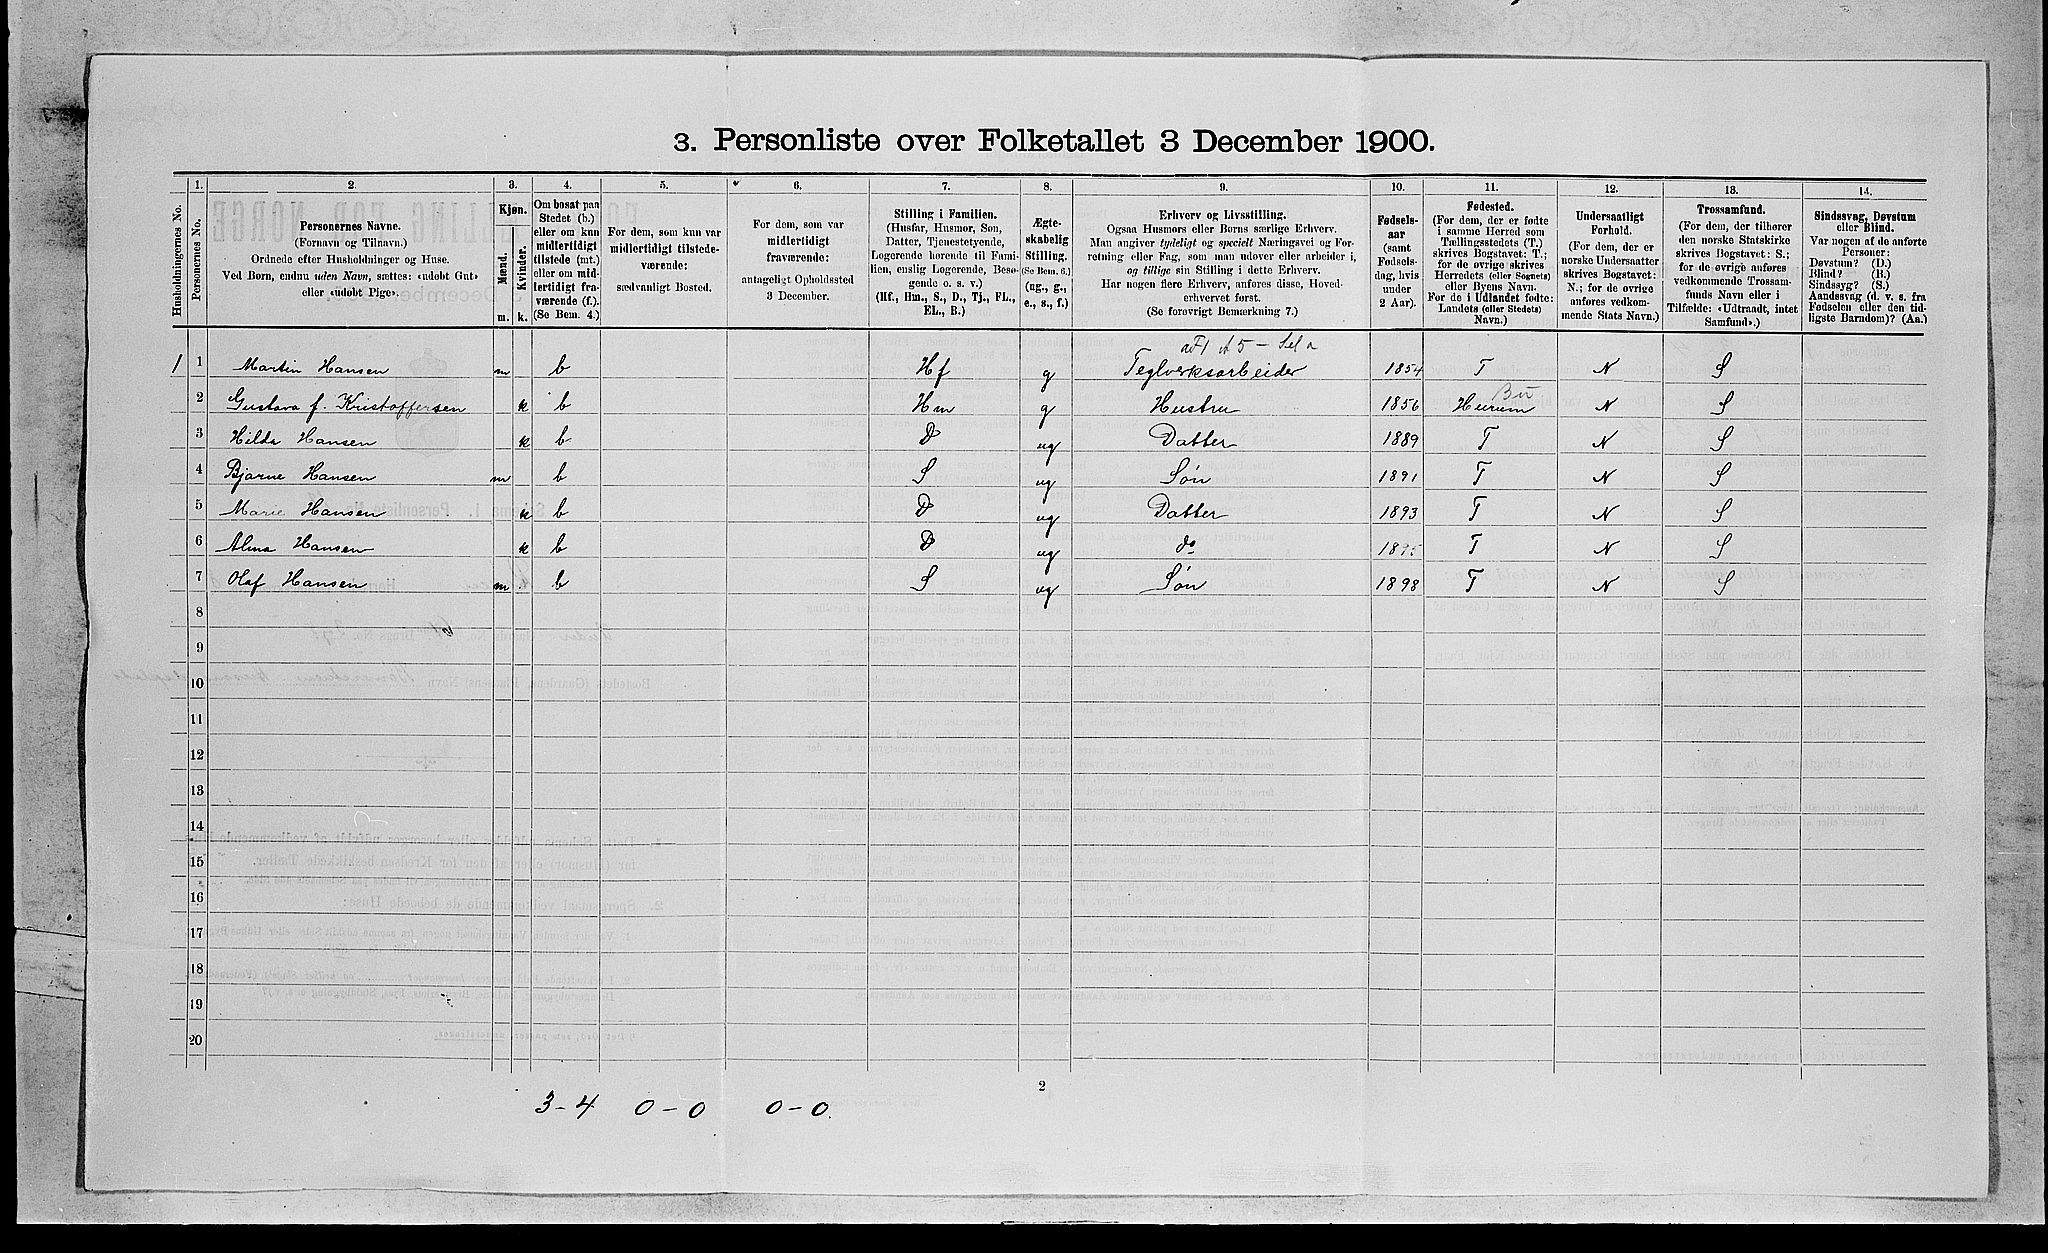 3. Personliste over Folketallet 3 December 1900.
1. 2. 3. 4. 5. 6. 7. 8. 9. 10. 11. 12. 13. 14.
Husholdningernes No.
Personernes No.
Personernes Navne.
(Fornavn og Tilnavn.)
Ordnede efter Husholdninger og Huse.
Ved Børn, endnu uden Navn, sættes: «udøbt Gut»
eller «udøbt Pige».
Kjøn.
Mænd.
Kvinder.
m. k.
Om bosat paa
Stedet (b.)
eller om kun
midlertidigt
tilstede (mt.)
eller om mid-
lertidigt fra-
værende (f.).
(Se Bem. 4.)
For dem, som kun var
midlertidigt tilstede-
værende:
sædvanligt Bosted.
For dem, som var
midlertidigt
fraværende:
antageligt Opholdssted
3 December.
Stilling i Familien.
(Husfar, Husmor, Søn,
Datter, Tjenestetyende,
Logerende hørende til Fami-
lien, enslig Logerende, Besø-
gende o. s. v.)
(Hf., Hm., S., D., Tj., FL.,
EL., B.)
Ægte-
skabelig
Stilling.
(Se Bem. 6.)
(ug., g.,
e., s., f.)
Erhverv og Livsstilling.
Ogsaa Husmors eller Børns særlige Erhverv.
Man angiver tydeligt og specielt Næringsvei og For-
retning eller Fag, som man udøver eller arbeider i,
og tillige sin Stilling i dette Erhverv.
Har nogen flere Erhverv, anføres disse, Hoved-
erhvervet først.
(Se forøvrigt Bemærkning 7.)
Fødsels-
aar
(samt
Fødsels-
dag, hvis
under
2 Aar).
Fødested.
(For dem, der er fødte
i samme Herred som
Tællingsstedets (T.)
skrives Bogstavet: T.;
for de øvrige skrives
Herredets (eller Sognets)
eller Byens Navn.
For de i Udlandet fødte:
Landets (eller Stedets)
Navn.)
Undersaatligt
Forhold.
(For dem, der er
norske Undersaatter
skrives Bogstavet:
N.; for de øvrige
anføres vedkom-
mende Stats Navn.)
Trossamfund.
(For dem, der tilhører
den norske Statskirke
skrives Bogstavet: S.;
for de øvrige anføres
vedkommende Trossam-
funds Navn eller i
Tilfælde: «Udtraadt, intet
Samfund».)
Sindssvag, Døvstum
eller Blind.
Var nogen af de anførte
Personer:
Døvstum? (D.)
Blind? (B.)
Sindssyg? (S.)
Aandssvag (d. v. s. fra
Fødselen eller den tid-
ligste Barndom)? (Aa.)
1 1 Martin Hansen m b Hf g Teglverksarbeider 1854 T N S
Bu
2 Gustava f. Kristoffersen k b Hm g Hustru 1856 Hurum N S
3 Hilda Hansen k b D ug Datter 1889 T N S
4 Bjarne Hansen m b S ug Søn 1891 T N S
5 Marie Hansen k b D ug Datter 1893 T N S
6 Alma Hansen k b D ug do 1895 T N S
7 Olaf Hansen m b S ug Søn 1898 T N S
8
9
10
11
12
13
14
15
16
17
18
19
20
2
3-4 0-0 0-0.